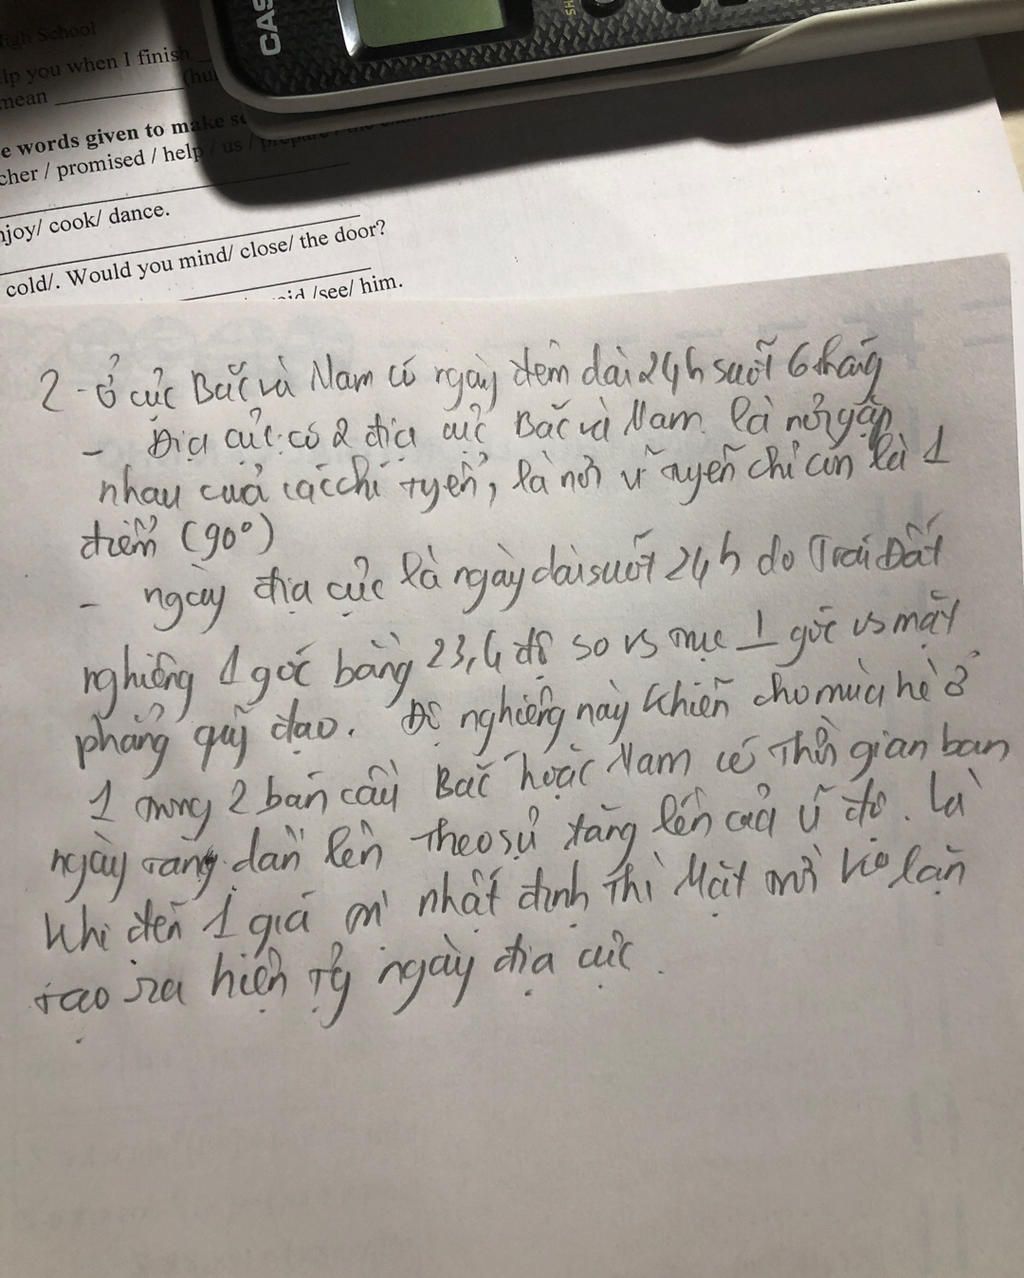 CAS
High School
lp you when I finish
mean ________ (hu
e words given to make se
cher / promised / help / us / prepare / the
njoy/ cook/ dance.
cold/. Would you mind/ close/ the door?
/see/ him.
2 - Ở cực Bắc và Nam có ngày đêm dài 24h suốt 6 tháng
- Địa cực: có 2 địa cực Bắc và Nam là nơi gặp
nhau của các chí tuyến, là nơi vĩ tuyến chỉ còn là 1
điểm (90°)
- ngày địa cực là ngày dài suốt 24h do Trái Đất
nghiêng 1 góc bằng 23,4 độ so vs trục ⊥ góc vs mặt
phẳng quỹ đạo. Độ nghiêng này khiến cho mùa hè ở
1 trong 2 bán cầu Bắc hoặc Nam có thời gian ban
ngày tăng dần lên theo sự tăng lên của vĩ độ. Là
khi đến 1 giá trị nhất định thì Mặt trời ko lặn
tạo ra hiện tg ngày địa cực.